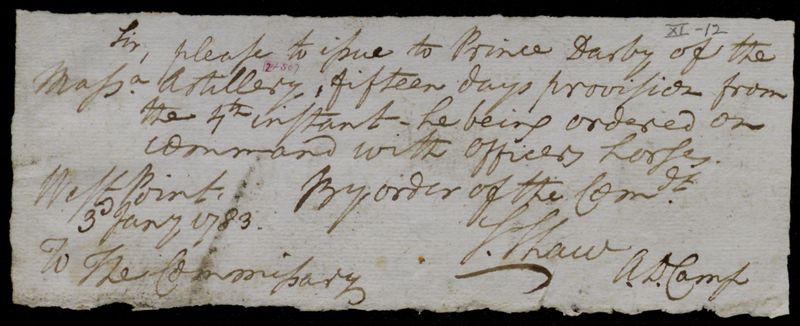 XI-12
Sir, please to issue to Prince Darby of the
Massa Artillery, fifteen days provision from
the 4th instant - he being ordered on
command with officers horses.
West Point. By order of the Comdt
3d Jany 1783.
S. Shaw
A.D. Camp
To The Commissary